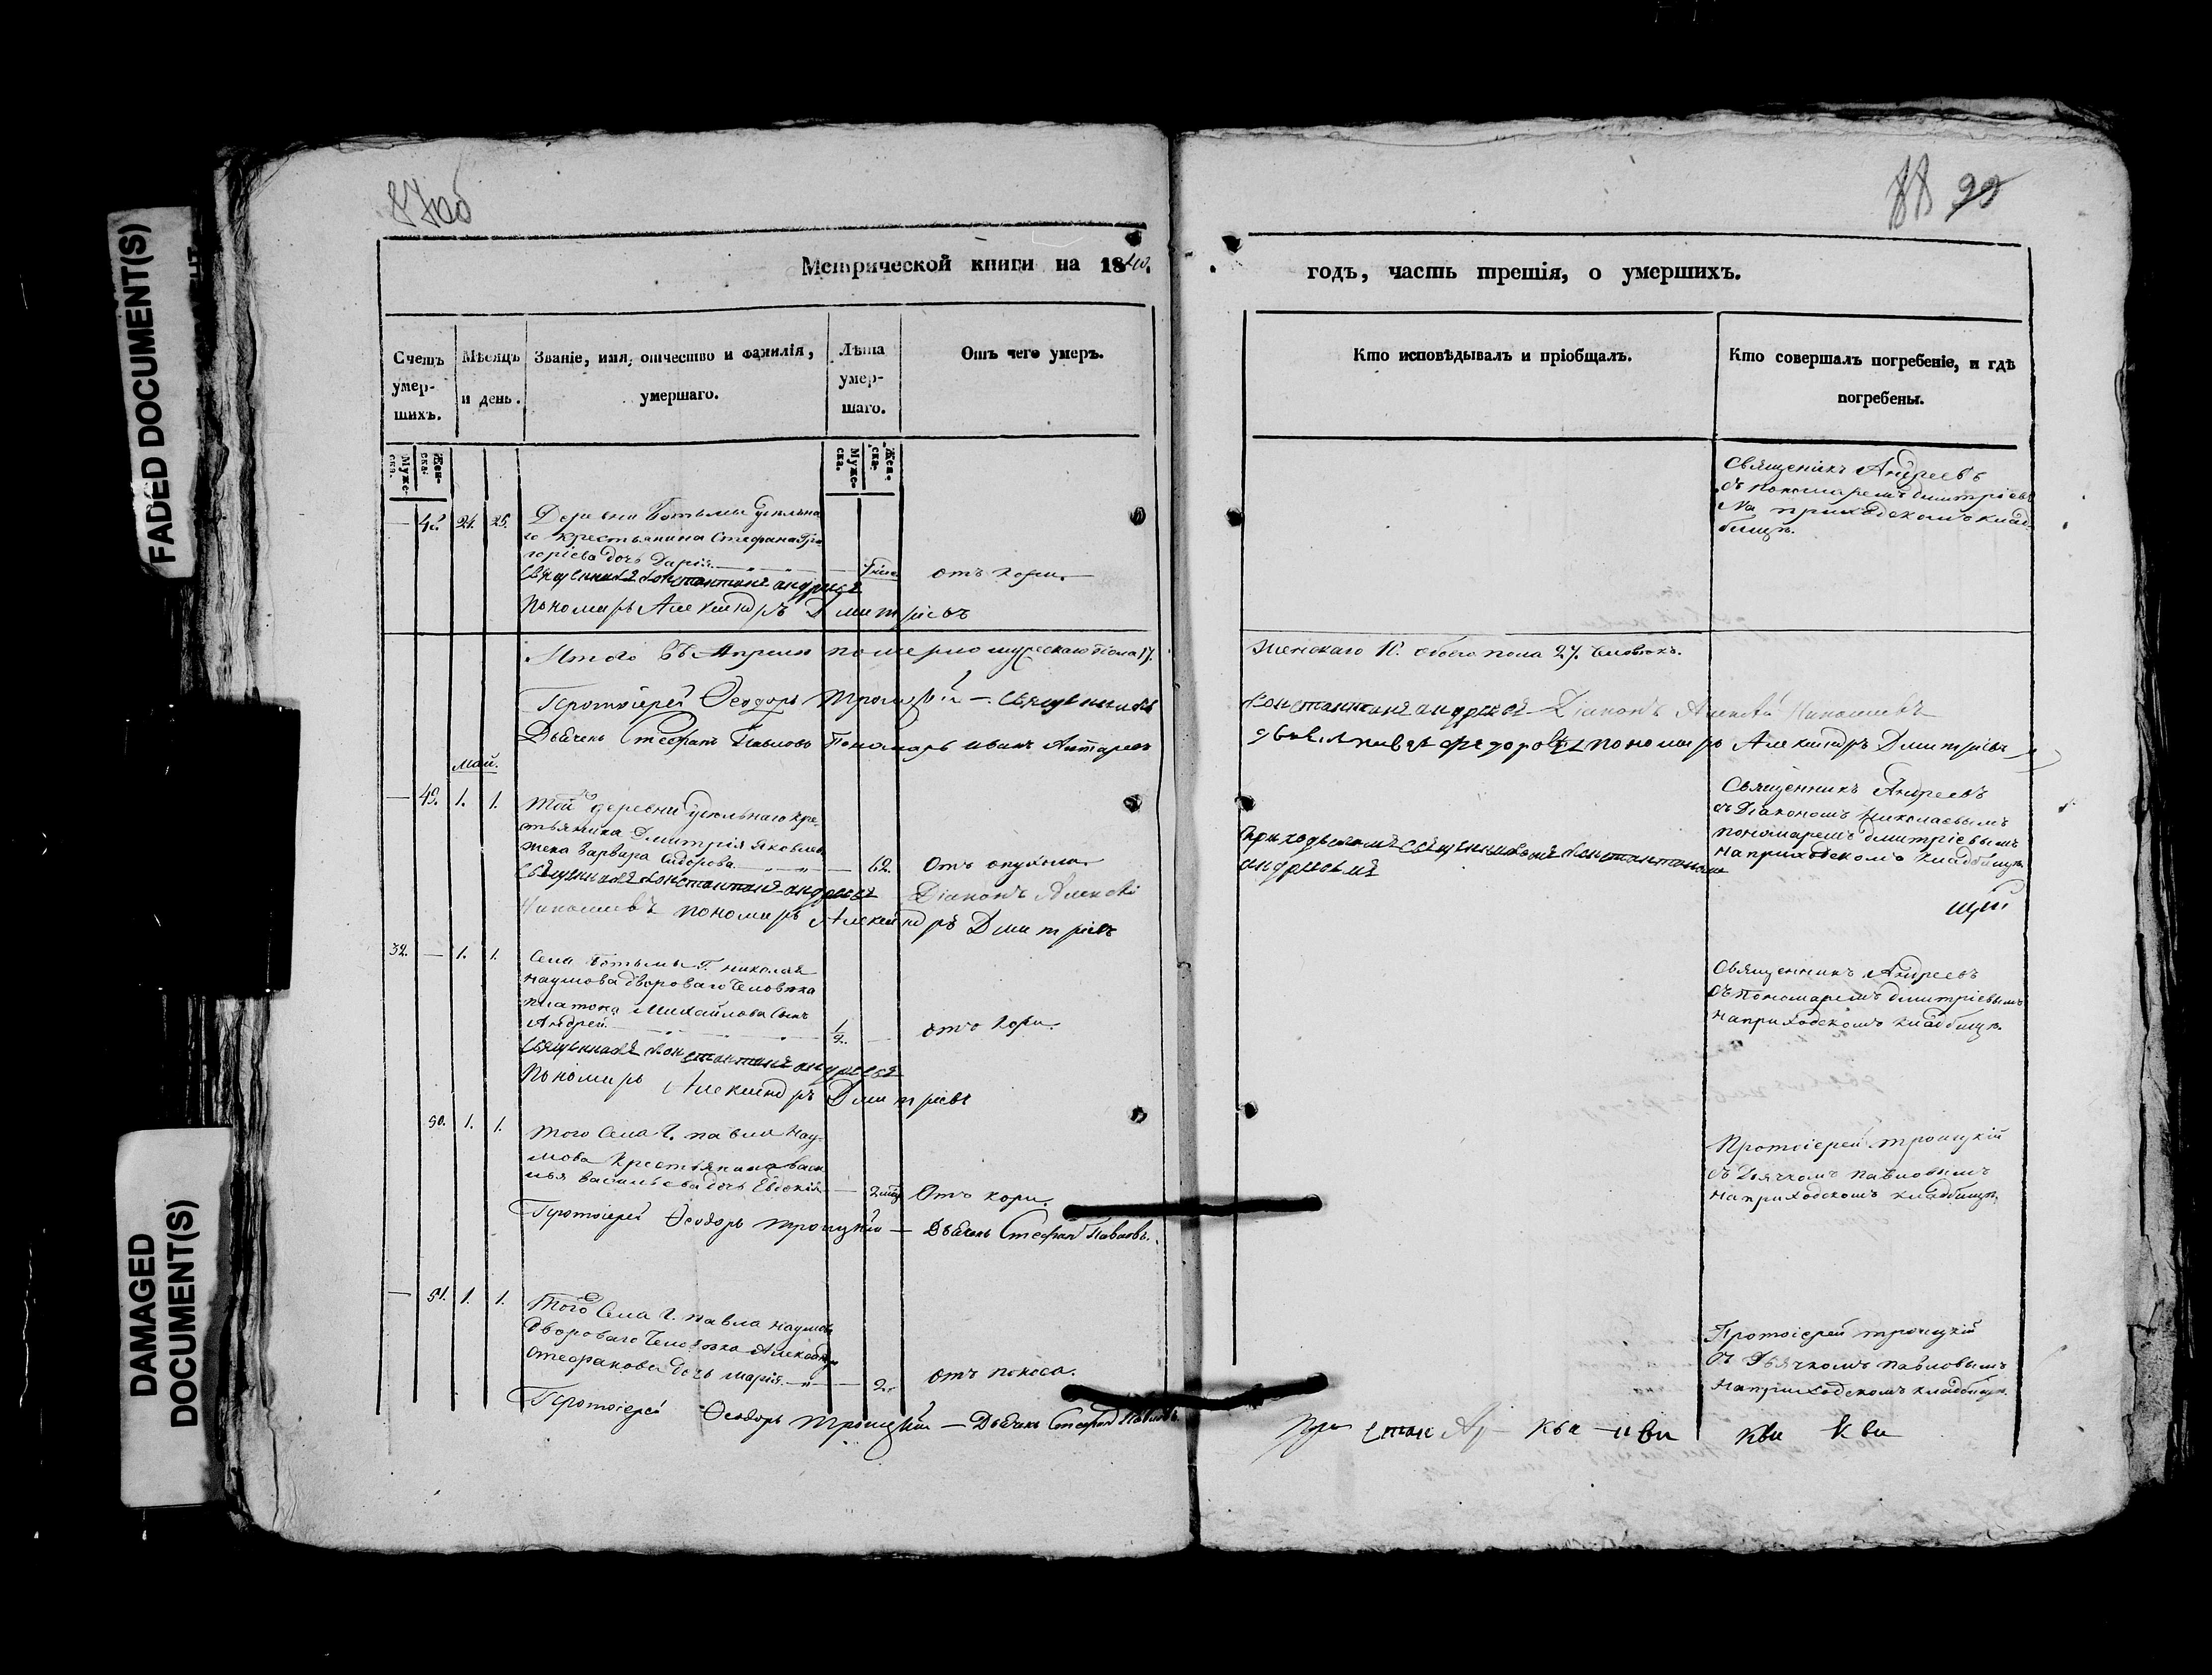 FADED DOCUMENT(S)
DAMAGED
DOCUMENT(S)
87об
Метрической книги на 1840.
Счетъ умер-шихъ.
Мѣсяцъ и день.
Званіе, имя, отчество и фамилія, умершаго.
Лѣта умер-шаго.
Отъ чего умеръ.
Муже-ска.
Жен-ска.
Муже-ска.
Жен-ска.
— 48. 24. 25.
Деревни Ботьмы удѣльна
го крестьянина Стефана Гри
горіева дочь Дарія
отъ кори.
Священникъ Константинъ Андреевъ
Пономарь Александръ Дмитріевъ
Итого въ Апрелѣ померло мужескаго пола 17.
Протоіерей Ѳеодоръ Троицкій — Священникъ
Дьячекъ Стефанъ Павловъ Пономарь Иванъ
май.
— 49. 1. 1.
Той деревни удѣльнаго кре-
стьянина Дмитрія Яковлева
жена Варвара Сидорова — 62. Отъ опухоли
Священникъ Константинъ Андреевъ Діаконъ Алексѣй
Николаевъ пономарь Александръ Дмитріевъ
32. — 1. 1.
Села Ботьмы Г. Николая
Наумова двороваго человѣка
Платона Михайлова сынъ
Андрей 1/2 — отъ кори.
Священникъ Константинъ Андреевъ
Пономарь Александръ Дмитріевъ
50. 1. 1.
Того Села Г. Павла Нау-
мова крестьянина Васи
лья Васильева дочь — Отъ кори.
Протоіерей Ѳеодоръ Троицкій — Дьячекъ Стефанъ Павловъ.
— 51. 1. 1.
Того Села Г. Павла Наумова
двороваго человѣка
Стефанова дочь Марія — 2. отъ поноса.
Протоіерей Ѳеодоръ Троицкій — Дьячекъ Стефанъ Павловъ.
88 99
годъ, часть третія, о умершихъ.
Кто исповѣдывалъ и пріобщалъ.
Кто совершалъ погребеніе, и гдѣ погребены.
Священникъ Андреевъ
съ пономаремъ Дмитріевымъ
На приходскомъ клад-
бищѣ.
Женскаго обоего пола 27. человѣкъ.
Константинъ Андреевъ Діаконъ Алексѣй Николаевъ
Федоровъ пономарь Александръ Дмитріевъ
Приходскимъ Священникомъ Константиномъ
Андреевымъ
Священникъ Андреевъ
съ Діакономъ Николаевымъ
пономаремъ Дмитріевымъ
на приходскомъ кладбищѣ
Священникъ Андреевъ
съ пономаремъ Дмитріевымъ
на приходскомъ кладбищѣ.
Протоіерей Троицкій
съ Дьячкомъ Павловымъ
на приходскомъ кладбищѣ.
Протоіерей Троицкій
съ Дьячкомъ Павловымъ
на приходскомъ кладбищѣ.